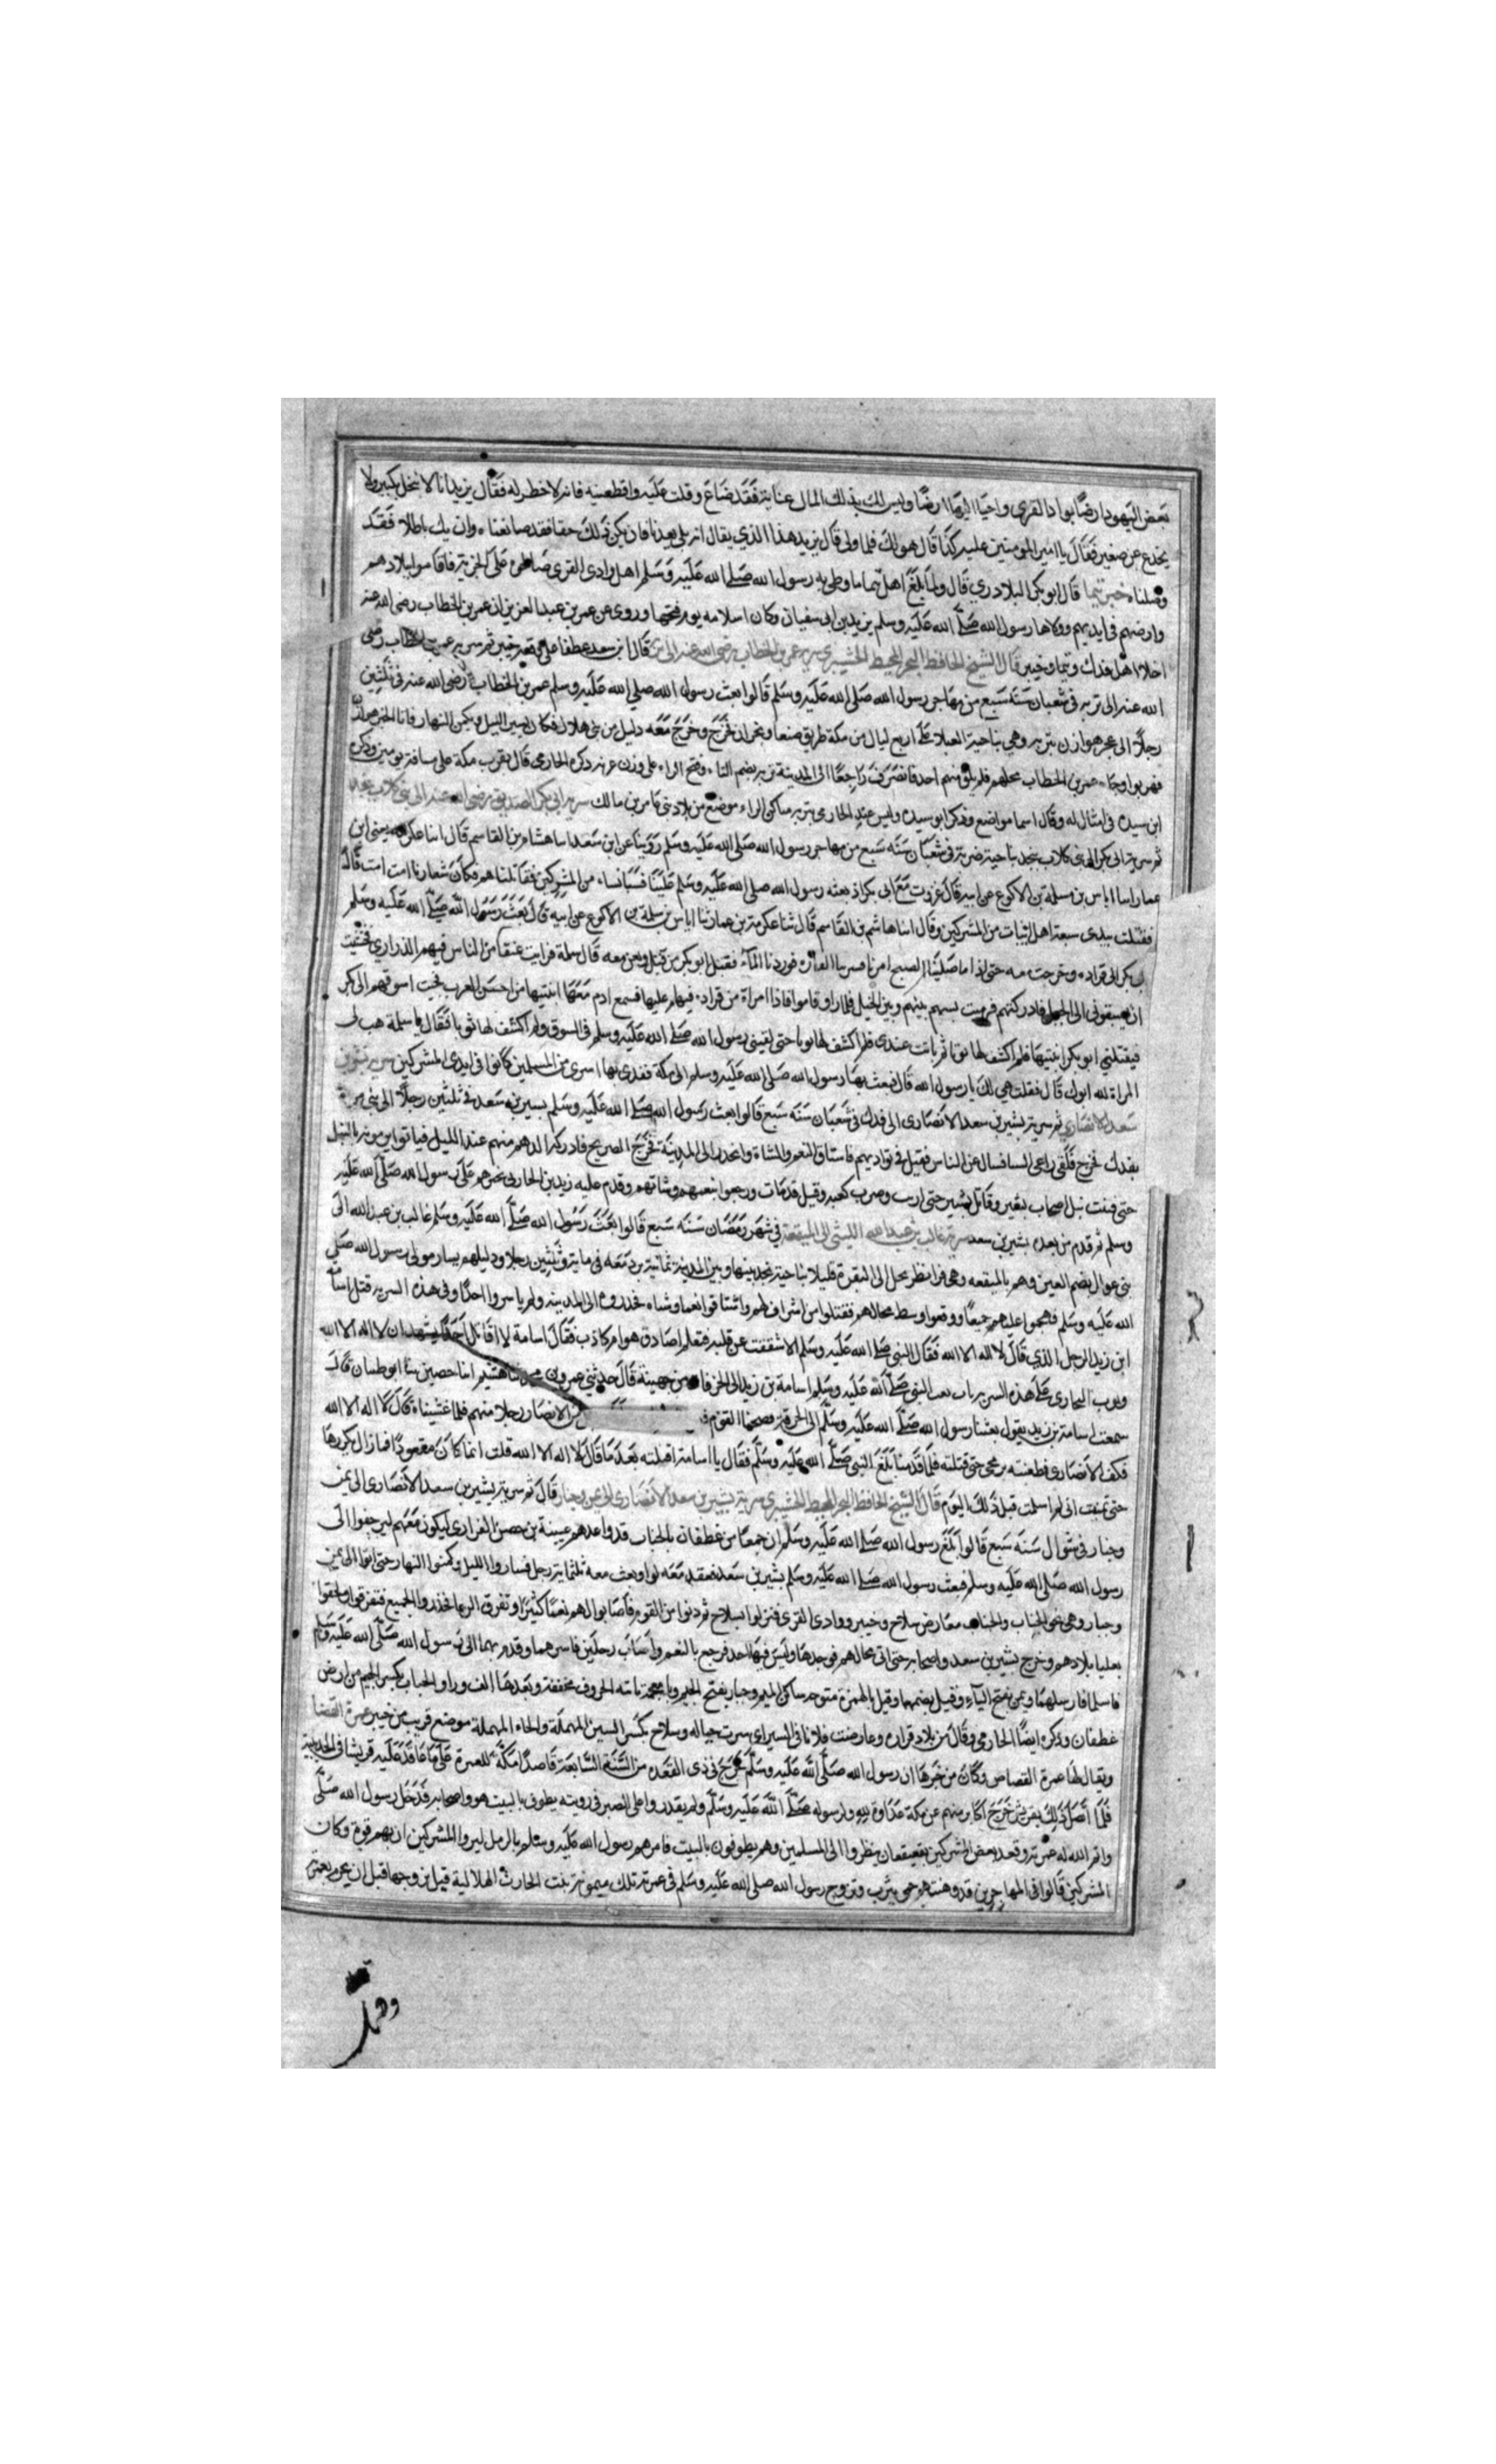 بعض اليهود ارضا بوادي القرى واحيا اليها ارضا وليس لك بذلك المال عناية فقد ضاع وقلت عليه واقطعنيه فانه لا خطر له فقال يزيد انا لا نبخل بكبير ولا
يخدع عن صغير فقال يا امير المومنين عليه كذا قال هو لك فلما ولى قال يزيد هذا الذي يقال انه يلي بعدنا فان يكن ذلك حقا فقد صانعناه وان يك باطلا فقد
وصلناه خبر تيما قال ابو بكر البلادري قال ولما بلغ اهل تيما ما وطي به رسول الله صلى الله عليه وسلم اهل وادى القرى صالحوه على الجزية فاقاموا ببلادهم
وارضهم في ايديهم وولاها رسول الله صلى الله عليه وسلم يزيد بن ابى سفيان وكان اسلامه يوم فتحها وروى عن عمر بن عبد العزيز ان عمر بن الخطاب رضى الله عنه
اجلا اهل فدك وتيما وخيبر قال الشيخ الحافظ البحر المحيط سرية عمر بن الخطاب رضى الله عنه الى تربة قال ابن سعد ثم سرية عمر بن الخطاب رضى
الله عنه الى تربه في شعبان سنة سبع من مهاجر رسول الله صلى الله عليه وسلم قالوا بعث رسول الله صلى الله عليه وسلم عمر بن الخطاب رضى الله عنه في ثلثين
رجلا الى عجز هوازن بتربه وهي بناحية العبلاء على اربع ليال من مكة طريق صنعا ونجران فخرج وخرج معه دليل من بنى هلال فكان يسير الليل ويكمن النهار فاتا الخبر هوازن
فهربوا وجاء عمر بن الخطاب محلهم فلم يلق منهم احد فانصرف راجعا الى المدينة تربه بضم التاء وفتح الراء على وزن عرنه ذكره الحازمى قال بقرب مكة على مسافة يومين وذكره
ابن سيده في امثال له وقال اسما مواضع وذكر ابو سيده وليس عند الحازمى تربه ساكن الراء موضع من بلاد بنى عامر بن مالك سرية ابى بكر الصديق رضى الله عنه الى بنى كلاب بنجد
ثم سرية ابى بكر الى بنى كلاب بنجد بناحية ضرية في شعبان سنة سبع من مهاجر رسول الله صلى الله عليه وسلم روينا عن ابن سعد انبا هشام بن القاسم قال انبا عكرمه يعنى ابن
عمار انبا اياس بن سلمة بن الاكوع عن ابيه قال غزوت مع ابى بكر اذ بعثه رسول الله صلى الله عليه وسلم علينا فسبا ناسا من المشركين فقاتلناهم فكان شعارنا امت امت قال
فقتلت بيدى سبعة اهل ابيات من المشركين وقال انبا هاشم بن القاسم قال ثنا عكرمة بن عمار ثنا اياس بن سلمة بن الاكوع عن ابيه قال بعث رسول الله صلى الله عليه وسلم
ابا بكر الى فزاده وخرجت معه حتى اذا ما صلينا الصبح امرنا فوردنا الماء فقتل ابو بكر من قتل ونحن معه قال سلمة فرايت عنقا من الناس فيهم الذرارى فخشيت
ان يسبقونى الى الجبل فادركتهم فرميت بسهم بينهم وبين الجبل فلما راو قاموا فاذا امراة من فزاده فيهم عليها قشع ادم معها ابنتها من احسن العرب فجيت اسوقهم الى ابى بكر
فنفلني ابو بكر ابنتها فلم اكشف لها ثوبا ثم باتت عندى فلم اكشف لها ثوبا حتى لقينى رسول الله صلى الله عليه وسلم في السوق ولم اكشف لها ثوبا فقال يا سلمة هب لى
المراة لله ابوك قال فقلت هي لك يا رسول الله قال فبعث بها رسول الله صلى الله عليه وسلم الى مكة ففدى بها اسرى من المسلمين كانوا في ايدى المشركين سرية بشير بن
سعد الانصارى ثم سرية بشير بن سعد الانصارى الى فدك في شعبان سنه سبع قالوا بعث رسول الله صلى الله عليه وسلم بشير بن سعد في ثلثين رجلا الى بنى مرة
بفدك فخرج فلقى راعى الشا فسال عن الناس فقيل في نواديهم فاستاق النعم والشاة وانحدر الى المدينة فخرج الصريخ فادركه الدهم منهم عند الليل فباتوا يرمونه بالنبل
حتى فنيت نبل اصحاب بشير وقاتل بشير حتى ارتث وضرب كعبه وقيل قد مات ورجعوا بنعمهم وشاتهم وقدم علبه زيد بن الحارثى بخبرهم على رسول الله صلى الله عليه
وسلم ثم قدم من بعده بشير بن سعد سرية غالب بن عبد الله الليثى الى الميفعة في شهر رمضان سنه سبع قالوا بعث رسول الله صلى الله عليه وسلم غالب بن عبد الله الى
بنى عوال بضم العين وهم بالميفعه وهى وراء بطن نخل الى النقرة قليلا بناحية نجد بينها وبين المدينة ثمانية برد بعثه في ماية وثلثين رجلا ودليلهم يسار مولى رسول الله صلى
الله عليه وسلم فهجموا عليهم جميعا ووقعوا وسط محالهم فقتلوا من اشراف لهم واستاقوا نعما وشاء فحدروه الى المدينه ولم ياسروا احدا وفي هذه السرية قتل اسامة
ابن زيد الرجل الذي قال لا اله الا الله فقال النبى صلى الله عليه وسلم الا شققت عن قلبه فتعلم اصادق هو ام كاذب فقال اسامة لا اقاتل احدا يشهد ان لا اله الا الله
وبوب البخارى على هذه السرية باب بعث النبى صلى الله عليه وسلم اسامة بن زيد الى الحرقات من جهينة قال حدثني عمرو بن محمد ثنا هشيم انبا حصين ثنا ابو ظبيان قال
سمعت اسامة بن زيد يقول بعثنا رسول الله صلى الله عليه وسلم الى الحرقة فصبحنا القوم من الانصار رجلا منهم فلما غشيناه قال لا اله الا الله
فكف الانصارى فطعنته برمحى حتى قتلته فلما قدمنا بلغ النبى صلى الله عليه وسلم فقال يا اسامة اقتلته بعد ما قال لا اله الا الله قلت انما كان متعوذا فما زال يكررها
حتى تمنيت انى لم اسلمت قبل ذلك اليوم قال الشيخ الحافظ البحر المحيط سرية بشير بن سعد الانصارى الى يمن وجبار قال ثم سرية بشير بن سعد الانصارى الى يمن
وجبار في شوال سنه سبع قالوا بلغ رسول الله صلى الله عليه وسلم ان جمعا من غطفان بالجناب قد واعدهم عيينة بن حصن الفزارى ليكون معهم ليزحفوا الى
رسول الله صلى الله عليه وسلم فبعث رسول الله صلى الله عليه وسلم بشير بن سعد فعقد معه لوا وبعث معه ثلثماية رجل فساروا الليل وكمنوا النهار حتى اتوا الى يمن
وجبار وهى نحو الجناب والجناب معارض سلاح وخيبر ووادى القرى فنزلوا بسلاح ثم دنوا من القوم فاصابوا لهم نعما كثيرا وتفرق الرعا فحذروا الجميع فتفرقوا ولحقوا
بعليا بلادهم وخرج بشير بن سعد واصحابه حتى اتى محالهم فوجدها وليس فيها احد فرجع بالنعم واصاب رجلين فاسرهما وقدم بهما الى رسول الله صلى الله عليه وسلم
فاسلما فارسلهما ويمن بفتح الياء وقيل بضمها وقيل بالهمزة مفتوحه ساكن الميم وجبار بفتح الجيم وبا معجمة ثانية الحروف مخففة وبعدها الف ورا والجناب بكسر الجيم من ارض
غطفان وذكره ايضا الحازمى وقال من بلاد فزاره وعارضت فلانا في السير اى سرت حياله وسلاح بكسر السين المهملة والحاء المهملة موضع قريب من خيبر عمرة القضا
ويقال لها عمرة القصاص وكان من خبرها ان رسول الله صلى الله عليه وسلم خرج في ذى القعده من السنة السابعة قاصدا مكة للعمرة على ما عاقد عليه قريشا في الحديبية
فلما اتصل ذلك بقريش خرج اكابر منهم عن مكة عداوة لله ولرسوله صلى الله عليه وسلم ولم يقدروا على الصبر في رويته يطوف بالبيت هو واصحابه فدخل رسول الله صلى
واتم الله له عمرته وقعد بعض المشركين بقعيقعان ينظروا الى المسلمين وهم يطوفون بالبيت فامرهم رسول الله عليه وسلم بالرمل ليروا المشركين ان بهم قوة وكان
المشركين قالوا في المهاجرين قد وهنتهم حمى يثرب وتزوج رسول الله صلى الله عليه وسلم في عمرته تلك ميمونة بنت الحارث الهلالية قيل تزوجها قبل ان يحرم بعمرته